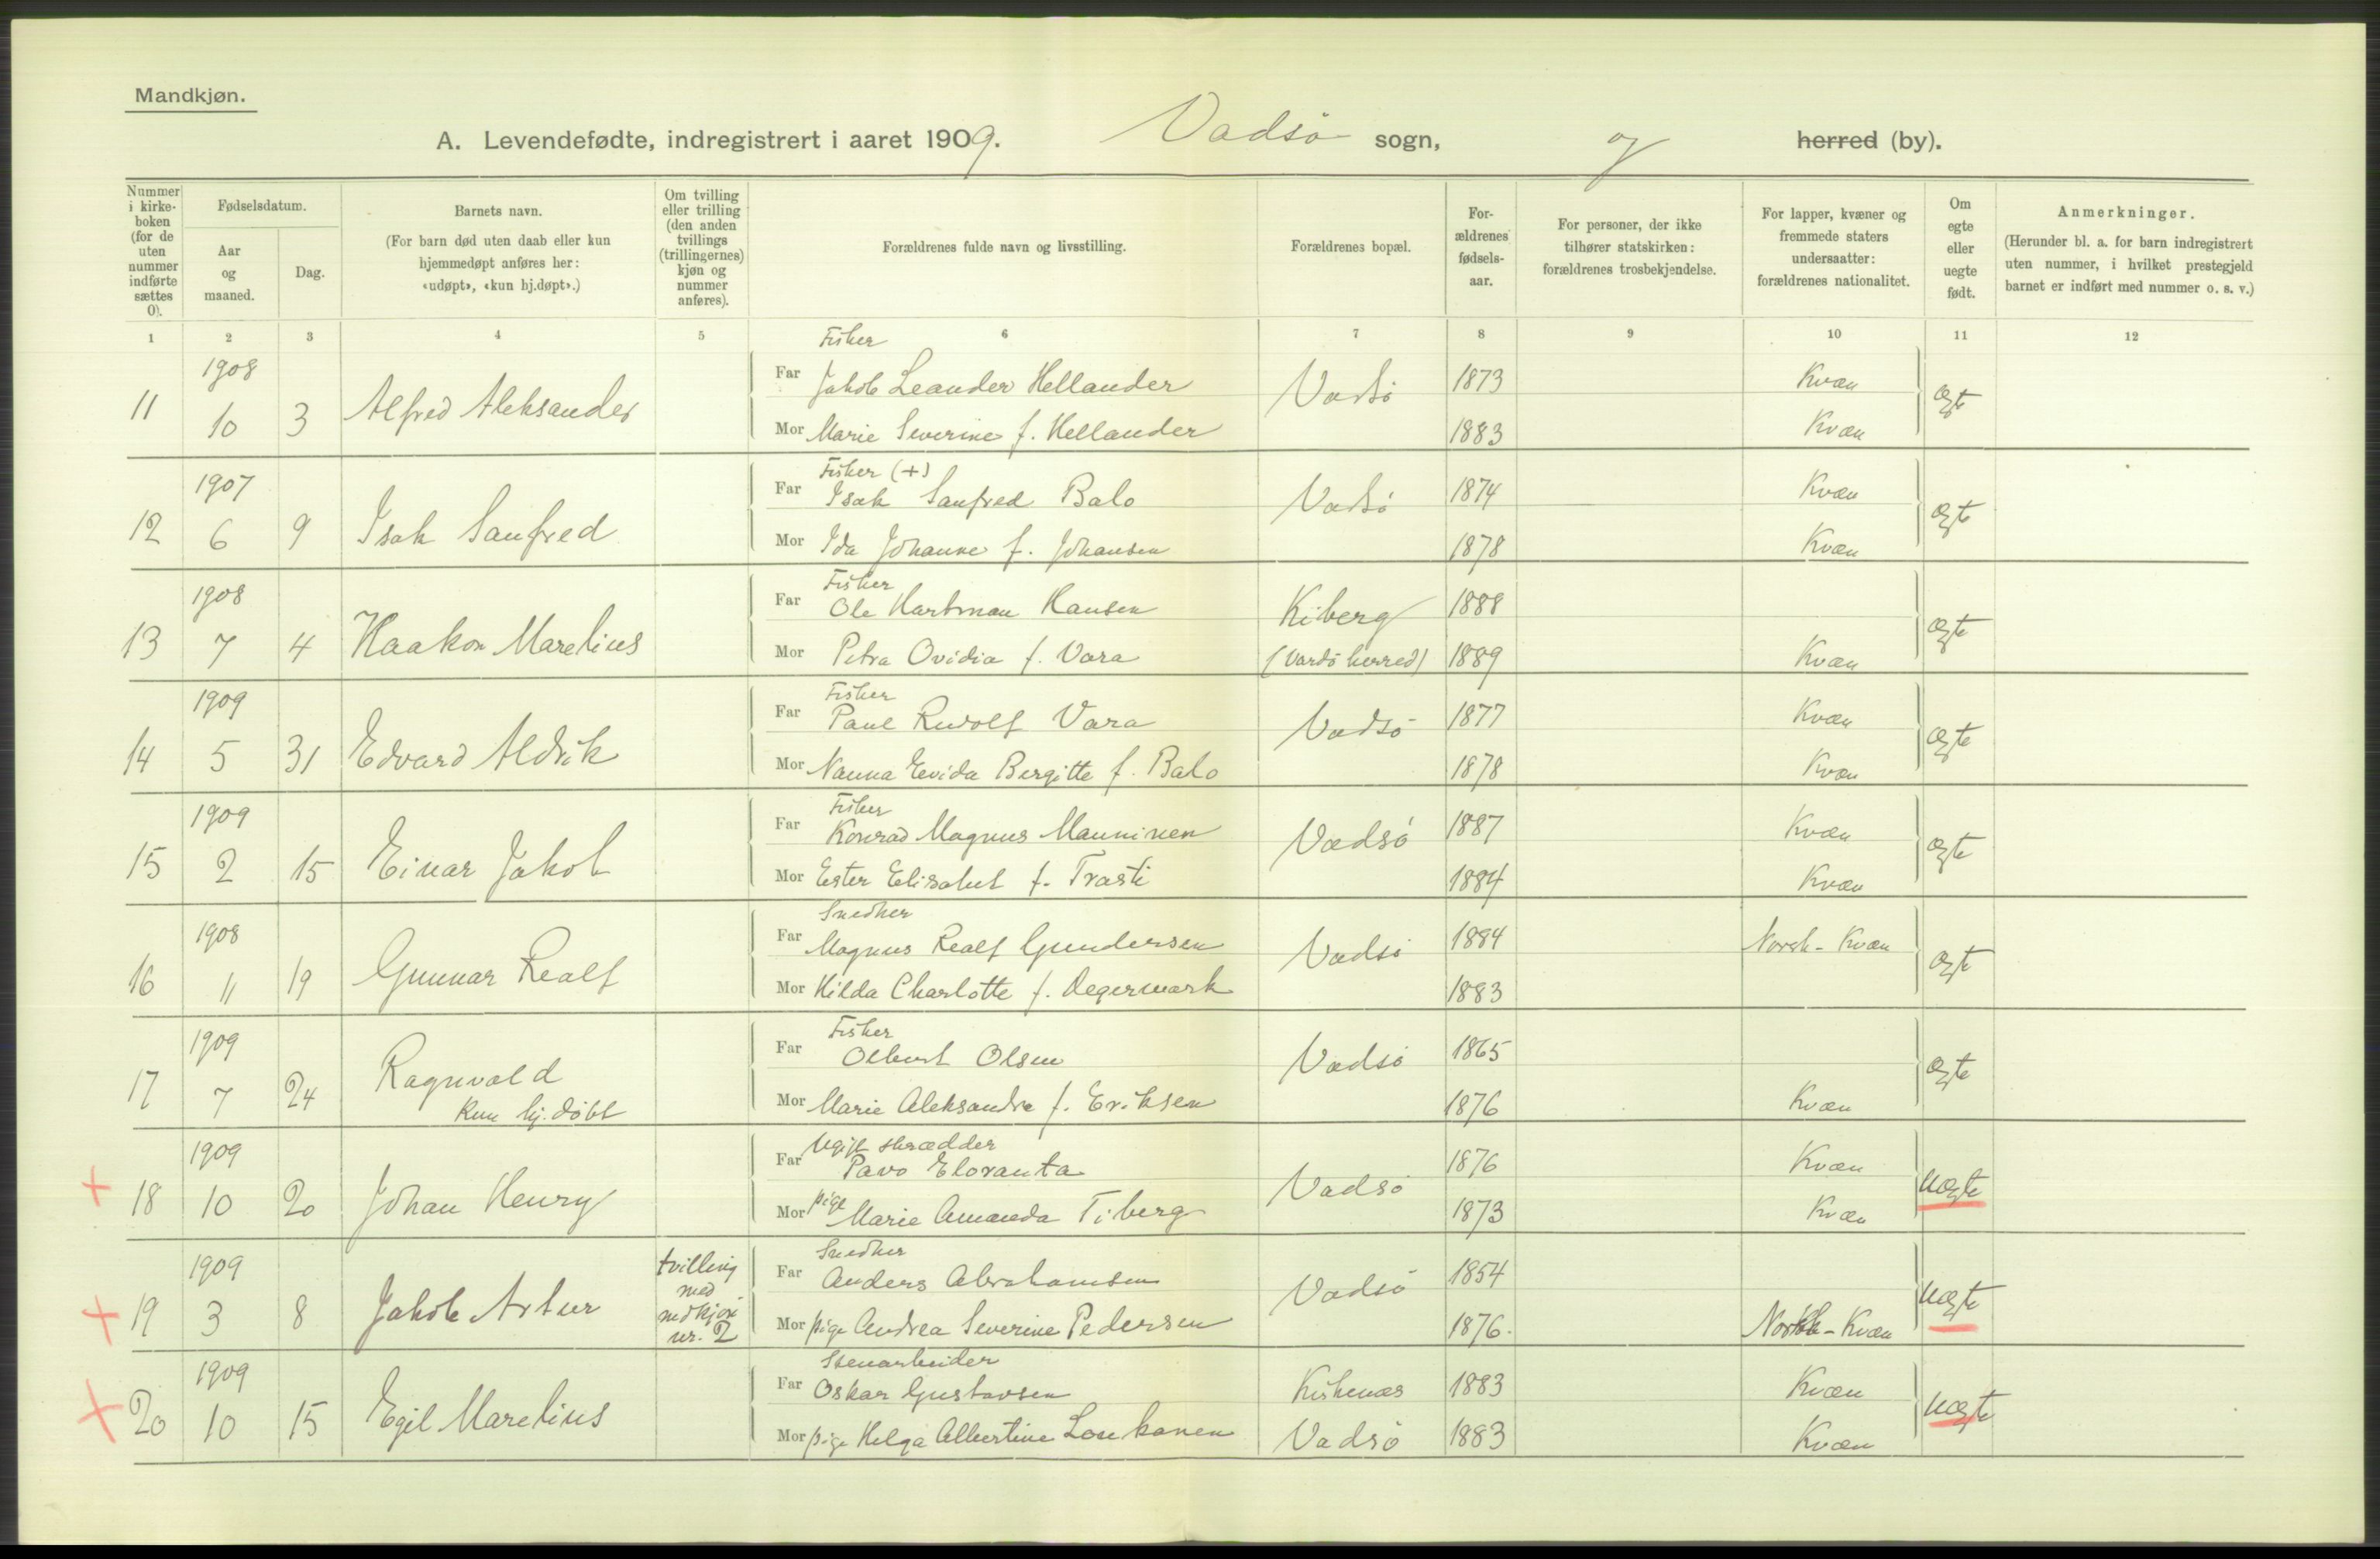 Mandkjøn.
A. Levendefødte, indregistrert i aaret 1909. Vadsö sogn, og herred (by).
Nummer i kirkeboken (for de uten nummer indførte sættes 0).
Fødselsdatum.
Aar og maaned.
Dag.
Barnets navn.
(For barn død uten daab eller kun hjemmedøpt anføres her: «udøpt», «kun hj.døpt».)
Om tvilling eller trilling (den anden tvillings (trillingernes) kjøn og nummer anføres).
Forældrenes fulde navn og livsstilling.
Forældrenes bopæl.
Forældrenes fødselsaar.
For personer, der ikke tilhører statskirken: forældrenes trosbekjendelse.
For lapper, kvæner og fremmede staters undersaatter: forældrenes nationalitet.
Om egte eller uegte født.
Anmerkninger.
(Herunder bl. a. for barn indregistrert uten nummer, i hvilket prestegjeld barnet er indført med nummer o. s. v.)
1 2 3 4 5 6 7 8 9 10 11 12
11 1908 10 3 Alfred Aleksander
Fisker
Far Jakob Leander Hellander Vadsö 1873 Kvæn ægte
Mor Marie Severine f. Hellander 1883 Kvæn
12 1907 6 9 Isak Sanfred
Fisker (+)
Far Isak Sanfred Balo Vadsö 1874 Kvæn ægte
Mor Ida Johanne f. Johansen 1878 Kvæn
13 1908 7 4 Haakon Marelius
Fisker
Far Ole Hartman Hansen Kiberg 1888 ægte
Mor Petra Ovidia f. Vara (Vardö herred) 1889 Kvæn
14 1909 5 31 Edvard Aldrik
Fisker
Far Paul Rudolf Vara Vadsö 1877 Kvæn ægte
Mor Nanna Evida Bergitte f. Balo 1878 Kvæn
15 1909 2 15 Einar Jakob
Fisker
Far Konrad Magnus Manninen Vadsö 1887 Kvæn ægte
Mor Ester Elisabet f. Trasti 1884 Kvæn
16 1908 11 19 Gunnar Realf
Snedker
Far Magnus Realf Gundersen Vadsö 1884 Norsk-Kvæn ægte
Mor Hilda Charlotte f. Degermark 1883
17 1909 7 24 Ragnvald
Kun hj. döbt
Fisker
Far Olbert Olsen Vadsö 1865 ægte
Mor Marie Aleksandra f. Eriksen 1876 Kvæn
+ 18 1909 10 20 Johan Henry
Ugift skrædder
Far Pavo Eloranta Vadsö 1876 Kvæn uægte
Mor pige Marie Amanda Tiberg 1873 Kvæn
+ 19 1909 3 8 Jakob Artur
tvilling
med
kvdkjøn
nr. 2
Snedker
Far Anders Abrahamsen Vadsö 1854 uægte
Mor pige Andrea Severine Pedersen 1876. Norsk-Kvæn
+ 20 1909 10 15 Egil Marelius
Stenarbeider
Far Oskar Gustavsen Kirkenæs 1883 Kvæn uægte
Mor pige Helga Albertine Loukanen Vadsö 1883 Kvæn